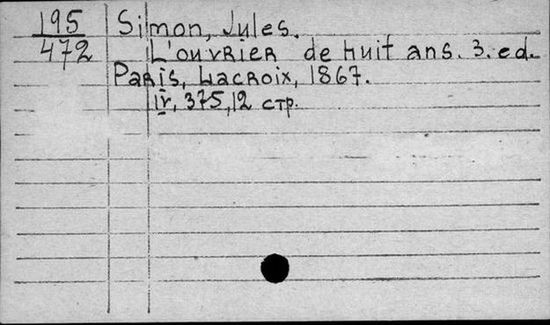 195 Simon, Jules.
472 L'ouvrier de huit ans. 3. ed.
Paris, Lacroix, 1867.
IV, 375, 12 стр.